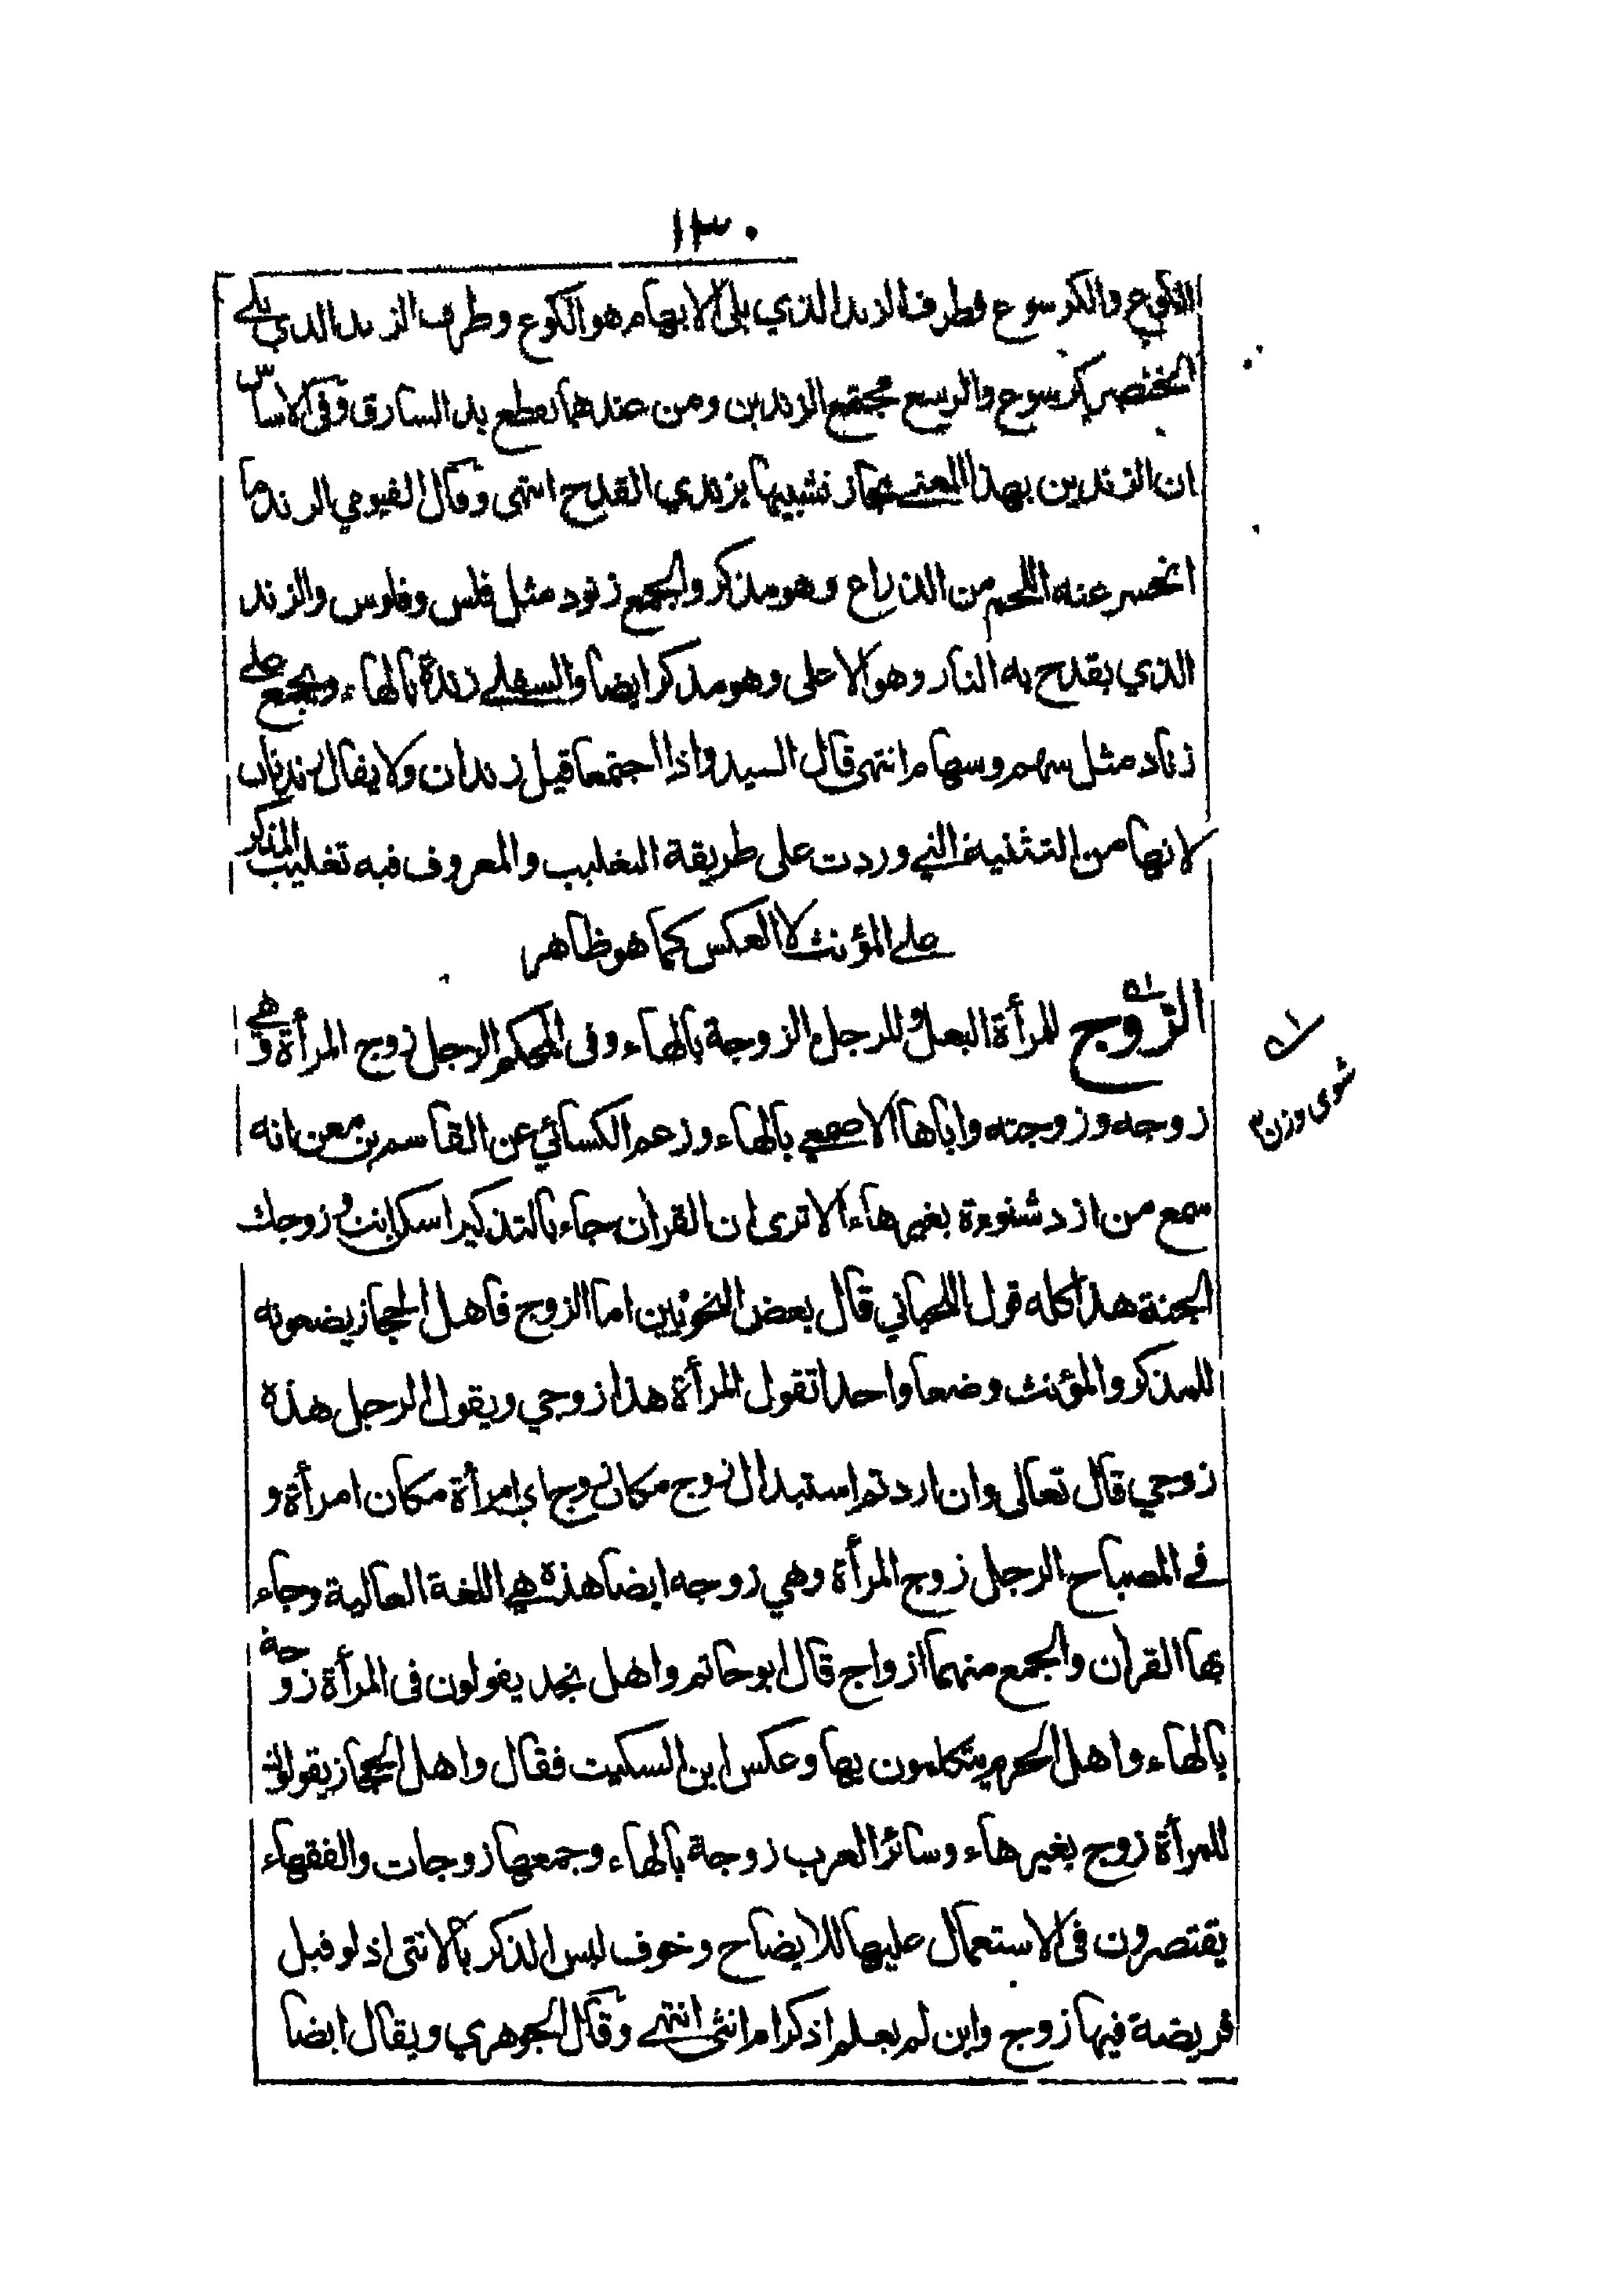 ١٣٠
الكوع والكرسوع فطرف الزند الذي يلي الابهام هو الكوع وطرف الزند الذي يلي
الخنصر كرسوع والرسغ مجتمع الزندين ومن عندهما تقطع يد السارق وفي الاساس
ان الزندين بهذا المعنى مجاز تشبيها بزندي القدح انتهى وقال الفيومي الزند ما
انحسر عنه اللحم من الذراع وهو مذكر والجمع زنود مثل فلس وفلوس والزند
الذي يقدح به النار وهو الاعلى وهو مذكر ايضا والسفلى زندة بالهاء ويجمع على
زناد مثل سهم وسهام انتهى قال السيد واذا اجتمعا قيل زندان ولا يقال زندتان
لانها من التثنية التي وردت على طريقة التغليب والمعروف فيه تغليب المذكر
على المؤنث لا العكس كما هو ظاهر
الزوج للمرأة البعل وللرجل الزوجة بالهاء وفي المحكم الرجل زوج المرأة وهي
زوجه وزوجته واباها الاصمعي بالهاء وزعم الكسائي عن القاسم بن معن انه
سمع من ازد شنوءة بغير هاء الا ترى ان القرآن جاء بالتذكير اسكن انت وزوجك
الجنة هذا كله قول اللحياني قال بعض النحويين اما الزوج فاهل الحجاز يضعونه
للمذكر والمؤنث وضعا واحدا تقول المرأة هذا زوجي ويقول الرجل هذه
زوجي قال تعالى وان اردتم استبدال زوج مكان زوج اي امرأة مكان امرأة و
في المصباح الرجل زوج المرأة وهي زوجه ايضا هذه هي اللغة العالية وجاء
بها القرآن والجمع منهما ازواج قال ابو حاتم واهل نجد يقولون في المرأة زوجة
بالهاء واهل الحرم يتكلمون بها وعكس ابن السكيت فقال واهل الحجاز يقولون
للمرأة زوج بغير هاء وسائر العرب زوجة بالهاء وجمعها زوجات والفقهاء
يقتصرون في الاستعمال عليها للايضاح وخوف لبس الذكر بالانثى اذ لو قيل
فريضة فيها زوج وابن لم يعلم اذكر ام انثى انتهى وقال الجوهري ويقال ايضا